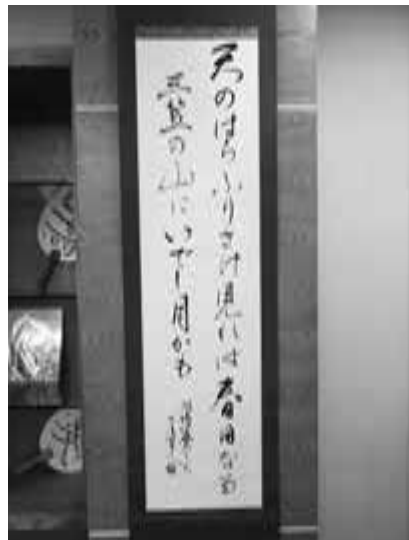 天のはらふりさけ見れは春日なる
三笠の山にいでし月かも